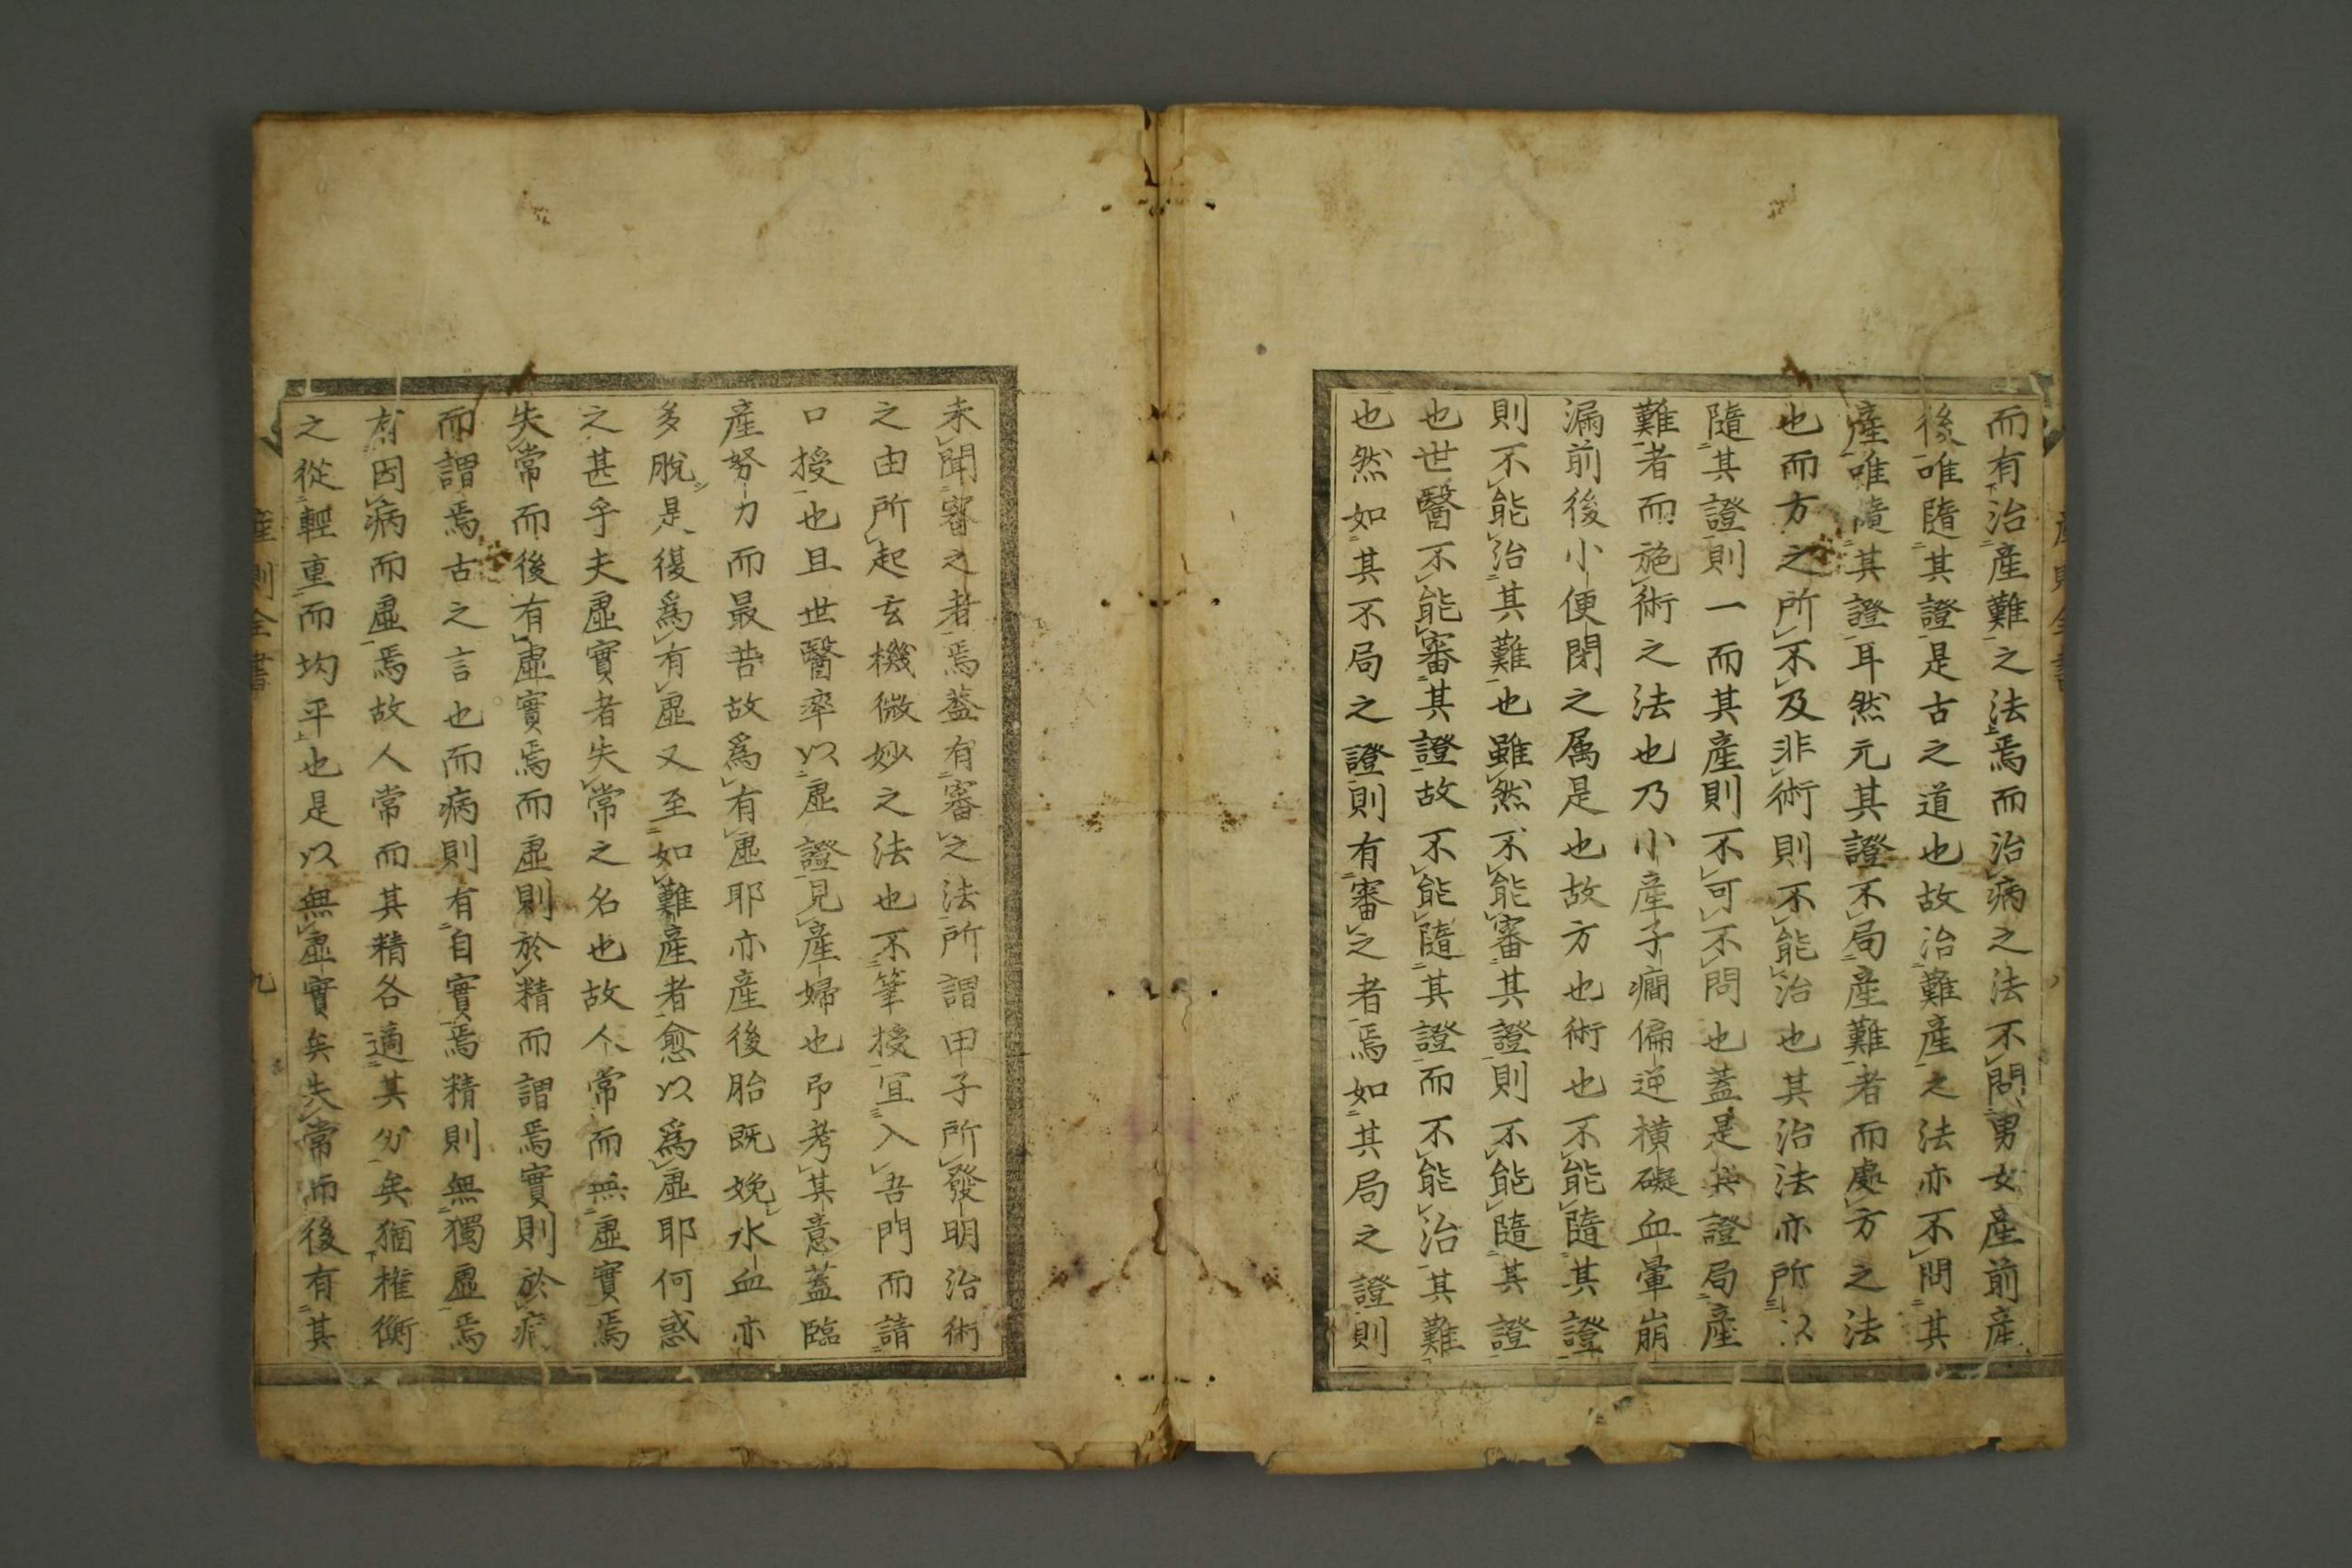 而有治產難之法焉而治病之法不問男女產前產
後唯隨其證是古之道也故治難產之法亦不問其
產唯隨其證耳然元其證不局產難者而處方之法
也而方之所不及非術則不能治也其治法亦所以
隨其證則一而其產則不可不問也蓋是其證局產
難者而施術之法也乃小產子癎偏逆橫礙血暈崩
漏前後小便閉之属是也故方也術也不能隨其證
則不能治其難也雖然不能審其證則不能隨其證
也世醫不能審其證故不能隨其證而不能治其難
也然如其不局之證則有審之者焉如其局之證則
未聞審之者焉蓋有審之法所謂甲子所發明治術
之由所起玄機微妙之法也不筆授宜入吾門而請
口授也且世醫率以虛證見產婦也卬考其意蓋臨
產努力而最苦故爲有虛耶亦產後胎既娩水血亦
多脫是復爲有虛又至如難產者愈以爲虛耶何惑
之甚乎夫虛實者失常之名也故人常而無虛實焉
失常而後有虛實焉而虛則於精而謂焉實則於病
而謂焉古之言也而病則有自實焉精則無獨虛焉
有因病而虛焉故人常而其精各適其分矣猶権衡
之從輕重而均平也是以無虛實矣失常而後有其
產則全書
九